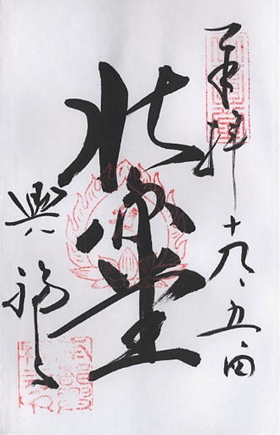 奉拝
十九、五、四
北円堂
興福寺